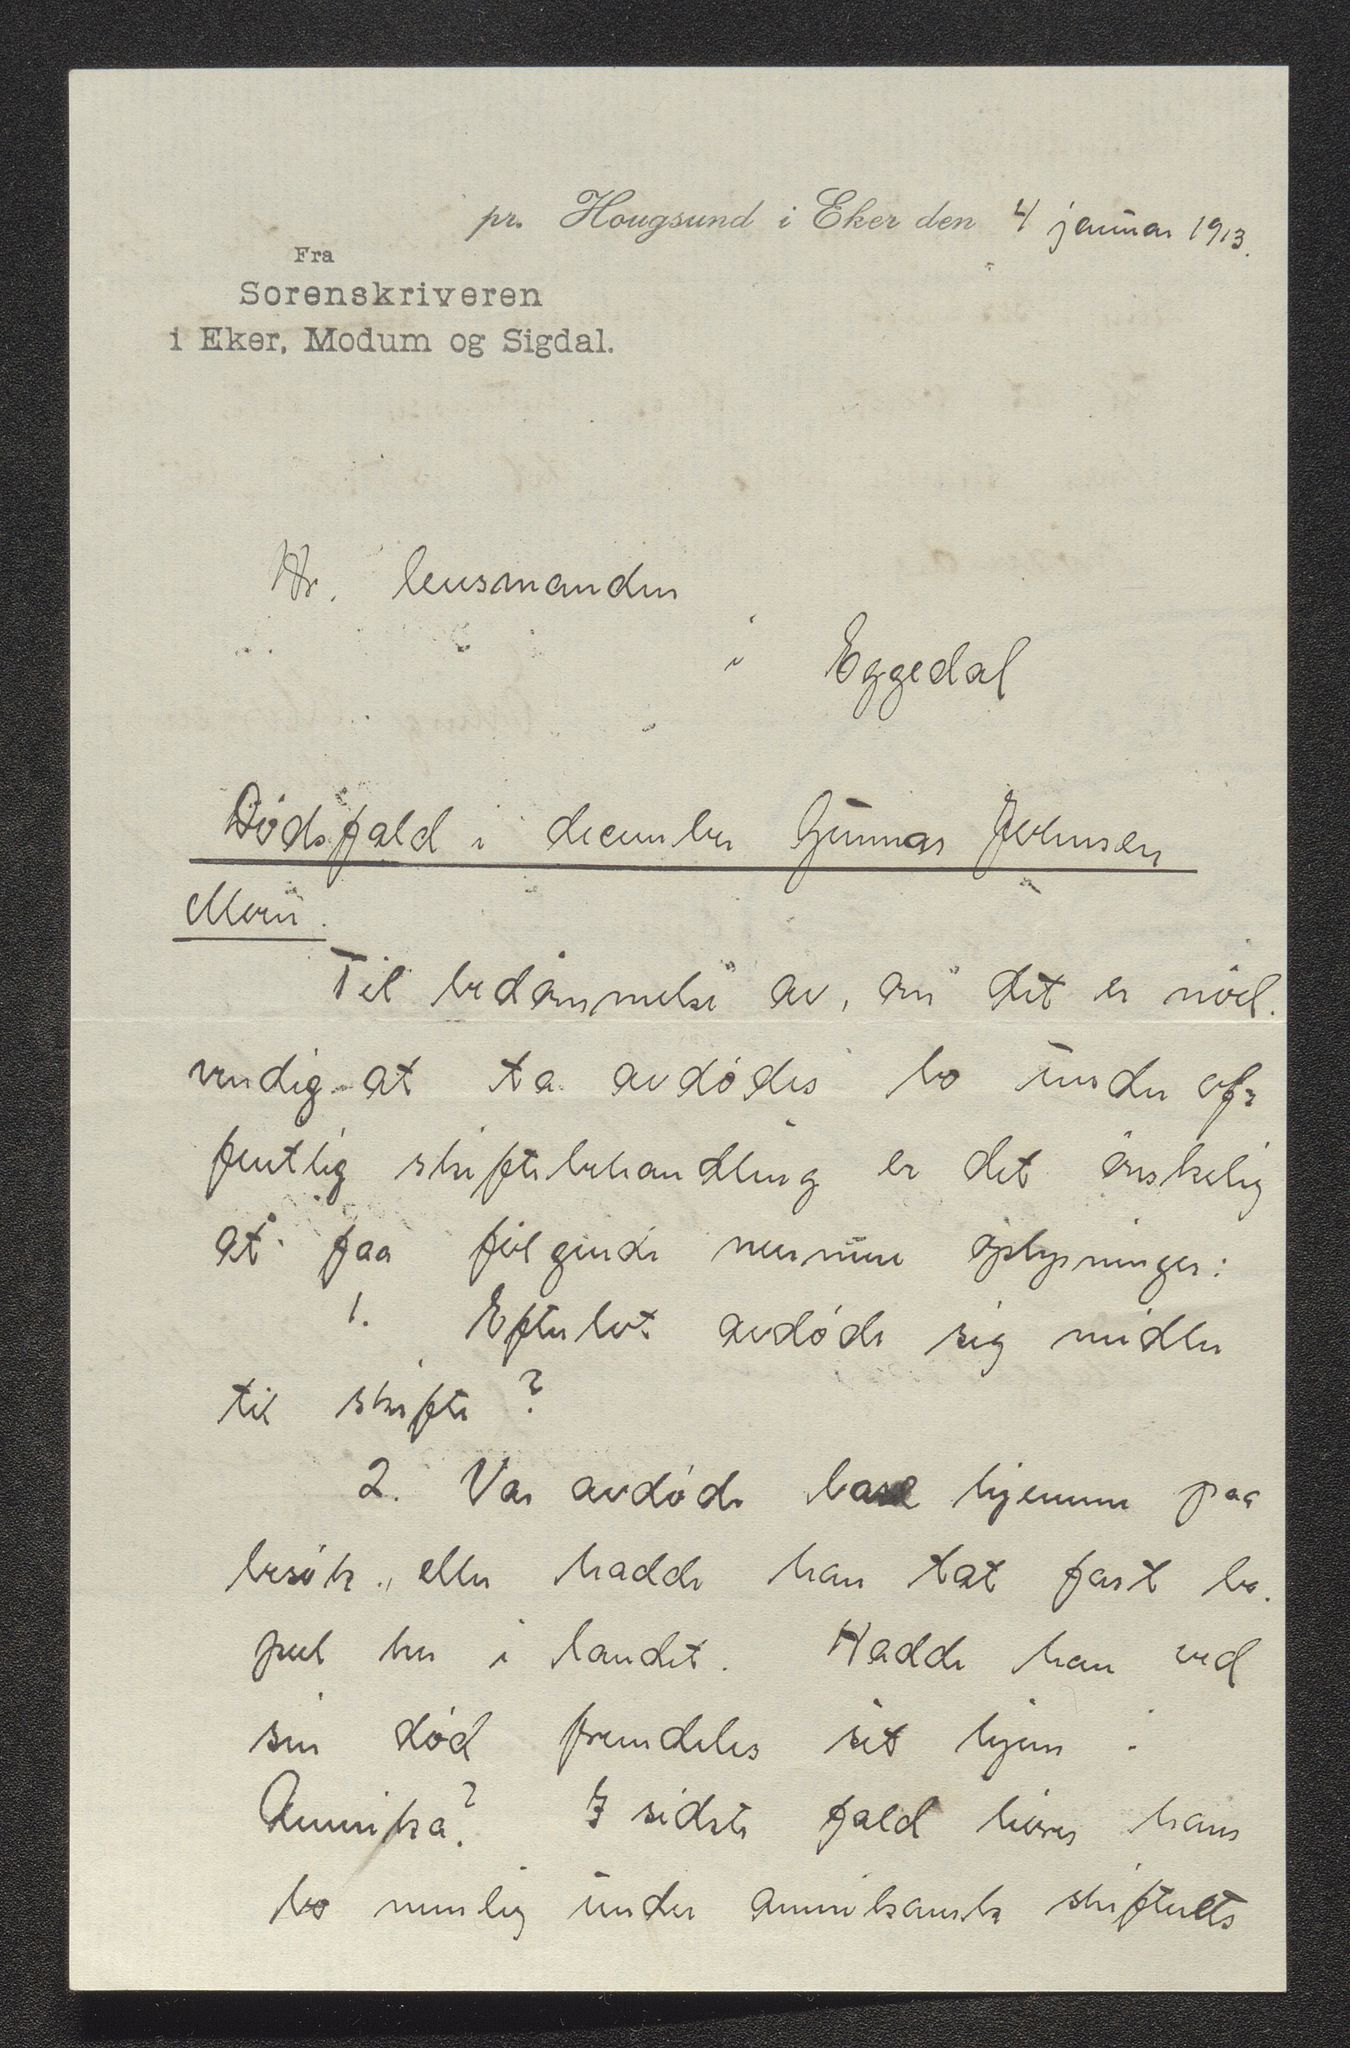 pr. Hougsund i Eker den 4 januar 1913.
Fra
Sorenskriveren
i Eker, Modum og Sigdal.
Hr. lensmanden
i Eggedal
Dødsfald i december Gunnar Johnsen
Moen.
Til bedømmelse av, om det er nød-
vendig at ta avdødes bo under of-
fentlig skiftebehandling er det ønskelig
at faa følgende nærmere oplysninger:
1. Efterlot avdøde sig midler
til skifte?
2. Var avdøde bare hjemme paa
besøk, eller hadde han tat fast bo-
pæl her i landet. Hadde han ved
sin død fremdeles sit hjem i
Amerika? I sidste fald hører hans
bo nemlig under amerikansk skifterets